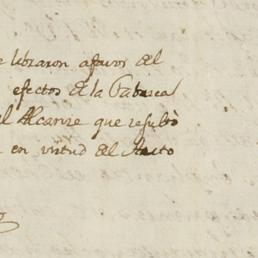 e libraron afavor del
efectos de la Fabrica
el Alcanze que resultò
en virtud del